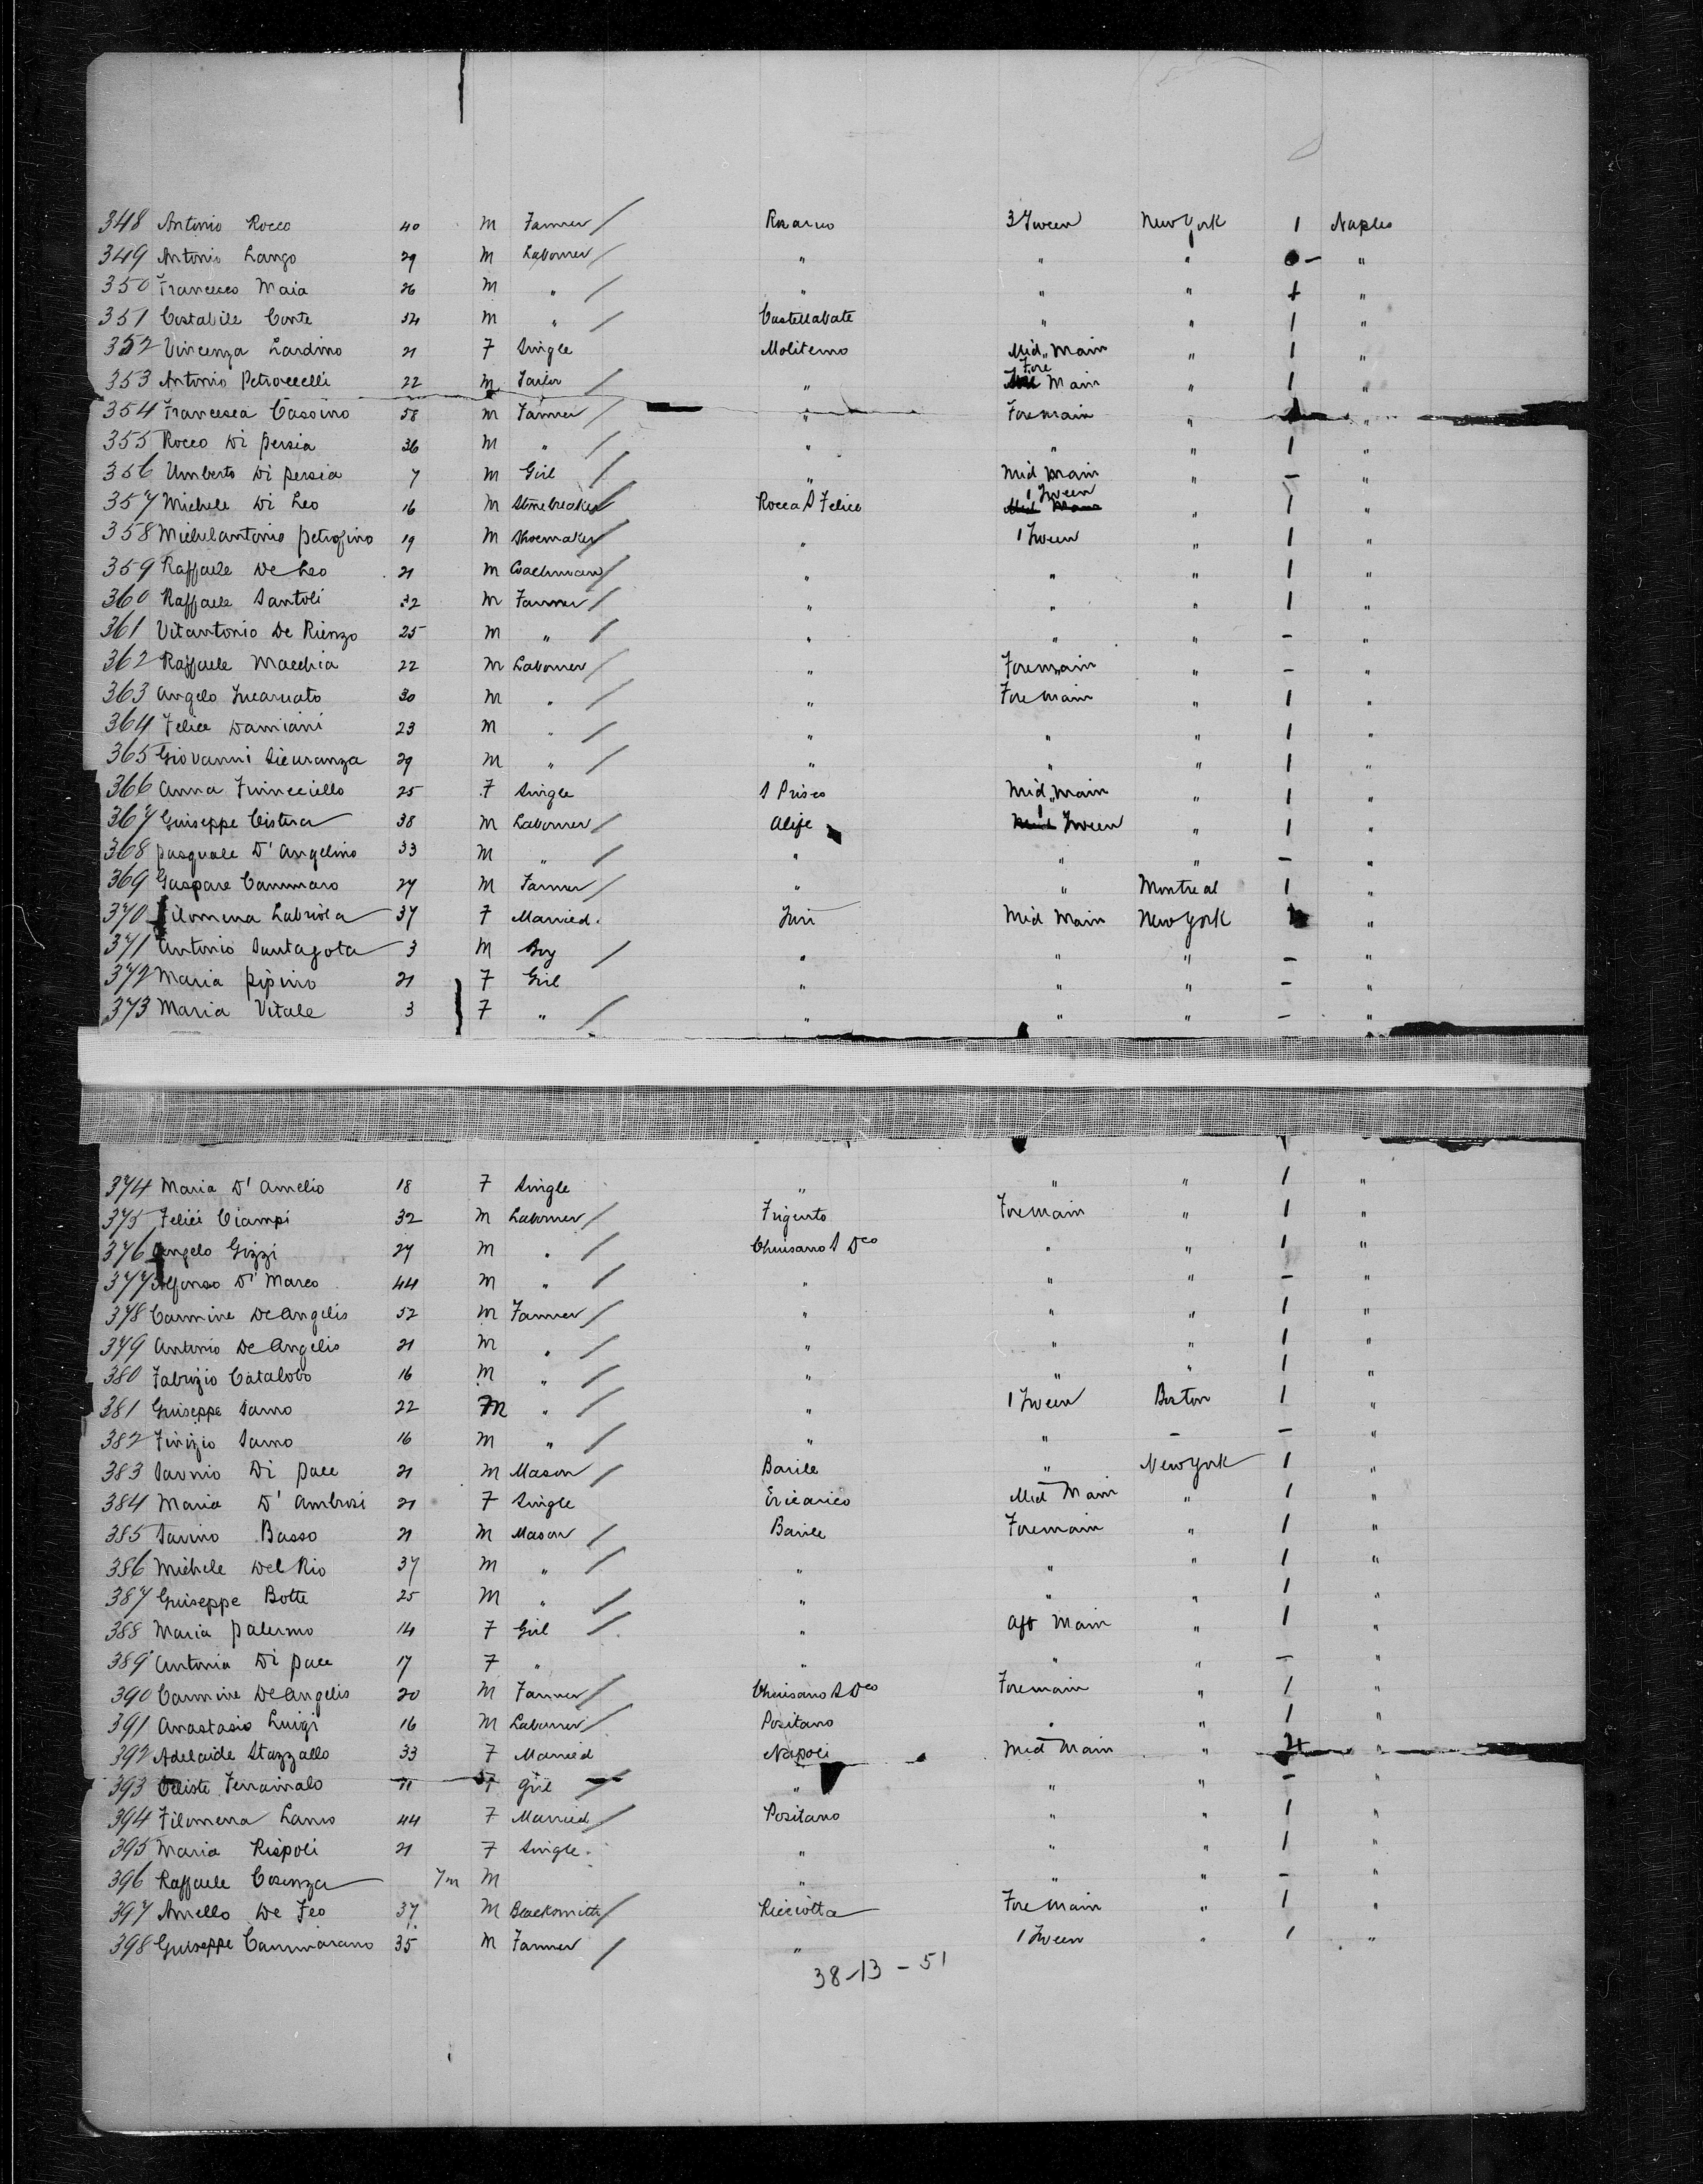 348 Antonio Rocco 40 M Farmer / Rosarno 3 Tween New York 1 Naples
349 Antonio Lango 29 M Labourer / " " " - "
350 Francesco Maia 26 M " / " " " 1 "
351 Costabile Conte 54 M " / Castellabate " " 1 "
352 Vincenza Lardino 21 F Single Moliterno Mid Main " 1 "
353 Antonio Petroccelli 22 M Tailor / " Fore Main " 1 "
354 Francesca Cascino 58 M Farmer / " Foremain " "
355 Rocco Di Persia 36 M " / " " " 1 "
356 Umberto Di Persia 7 M Girl / " Mid Main " - "
357 Michele Di Leo 16 M Stonebreaker / Rocca S Felice 1 Tween " 1 "
358 Michelantonio Petrofino 19 M Shoemaker / " 1 Tween " 1 "
359 Raffaele De Leo 21 M Coachman / " " " 1 "
360 Raffaele Santoli 32 M Farmer / " " " 1 "
361 Vitantonio De Rienzo 25 M " / " " " - "
362 Raffaele Macchia 22 M Labourer / " Foremain " - "
363 Angelo Incarnato 30 M " / " Fore main " 1 "
364 Felice Damiani 23 M " / " " " 1 "
365 Giovanni Sicuranza 29 M " / " " " 1 "
366 Anna Finneciello 25 F Single S Prisco Mid Main " 1 "
367 Guiseppe Cisterca 38 M Labourer / Alife 1 Tween " 1 "
368 Pasquale D' Angelino 33 M " / " " " - "
369 Gaspare Cammaro 27 M Farmer / " " Montreal 1 "
370 Filomena Labriola 37 F Married. Mid Main New York "
371 Antonio Santagota 3 M Boy / " " " - "
372 Maria Pipino 21 F Girl " " " - "
373 Maria Vitale 3 F " / " " " - "
374 Maria D' Amelio 18 F Single " " " 1 "
375 Felice Ciampi 32 M Labourer / Frigento Foremain " 1 "
376 Angelo Gizzi 27 M " / Chiusano S Dco " " 1 "
377 Alfonso D' Marco 44 M " / " " " - "
378 Carmine DeAngelis 52 M Farmer / " " " 1 "
379 Antonio De Angelis 21 M " / " " " 1 "
380 Fabrizio Catalobo 16 M " / " " " 1 "
381 Guiseppe Sarno 22 M " / " 1 Tween Boston 1 "
382 Finizio Sarno 16 M " / " " - - "
383 Savnio Di Pace 21 M Mason / Barile " New York 1 "
384 Maria D' Ambrosi 21 F Single Ericarico Mid Main " 1 "
385 Savino Basso 21 M Mason / Barile Foremain " 1 "
386 Michele Del Rio 37 M " / " " " 1 "
387 Guiseppe Botte 25 M " / " " " 1 "
388 Maria Palermo 14 F Girl / " Aft Main " 1 "
389 Antonia Di Pace 17 F " " " " - "
390 Carmine DeAngelis 20 M Farmer / Chiusano S Dco Foremain " 1 "
391 Anastasio Luigi 16 M Labourer / Positano " " 1 "
392 Adelaide Stazzallo 33 F Married Napoli Mid Main " "
393 Celiste 11 F Girl / " " " - "
394 Filomena Lamo 44 F Married / Positano " " 1 "
395 Maria Rispoli 21 F Single. " " " 1 "
396 Raffaele Cosenza 7m M " " " - "
397 Aniello De Feo 37 M Blacksmith / Ricciotta Fore Main " 1 "
398 Guiseppe Cammarano 35 M Farmer / " 1 Tween " 1 "
38-13-51